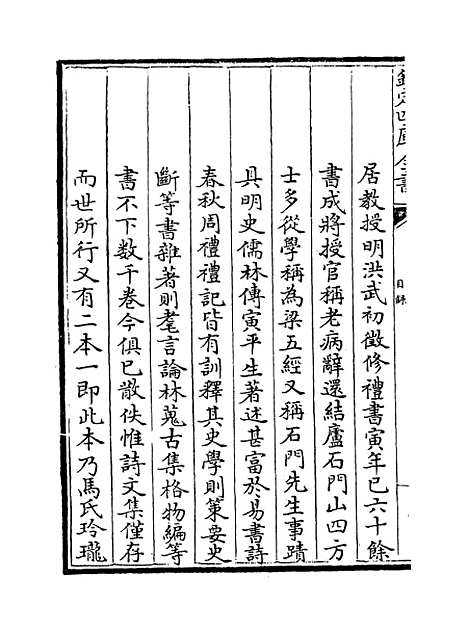 欽定四庫全書
目錄
居教授明洪武初徵修禮書寅年已六十餘
書成將授官稱老病辭還結廬石門山四方
士多從學稱為梁五經又稱石門先生事蹟
具明史儒林傳寅平生著述甚富於易書詩
春秋周禮禮記皆有訓釋其史學則策要史
斷等書雜著則耄言論林蒐古集格物編等
書不下數千卷今俱已散佚惟詩文集僅存
而世所行又有二本一即此本乃馬氏玲瓏